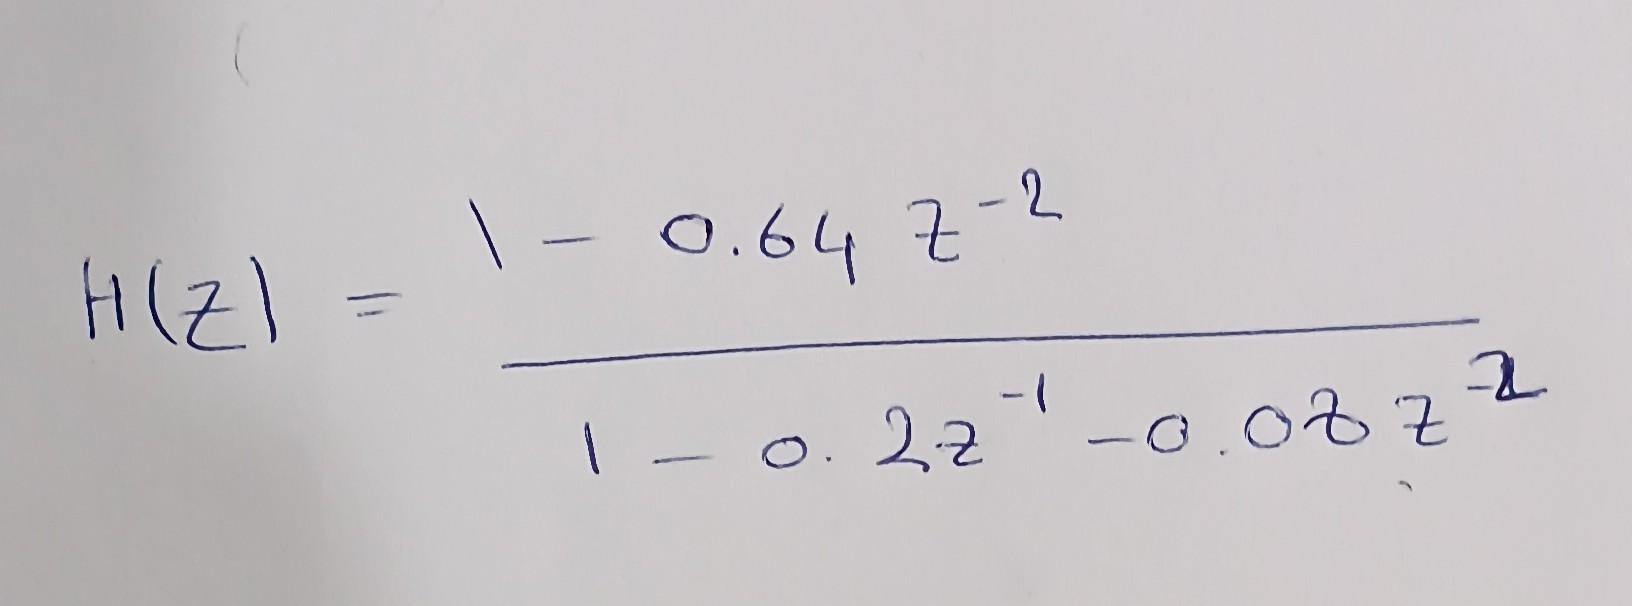 H(z) = \frac{1 - 0.64 z^{-2}}{1 - 0.2z^{-1} - 0.08 z^{-2}}